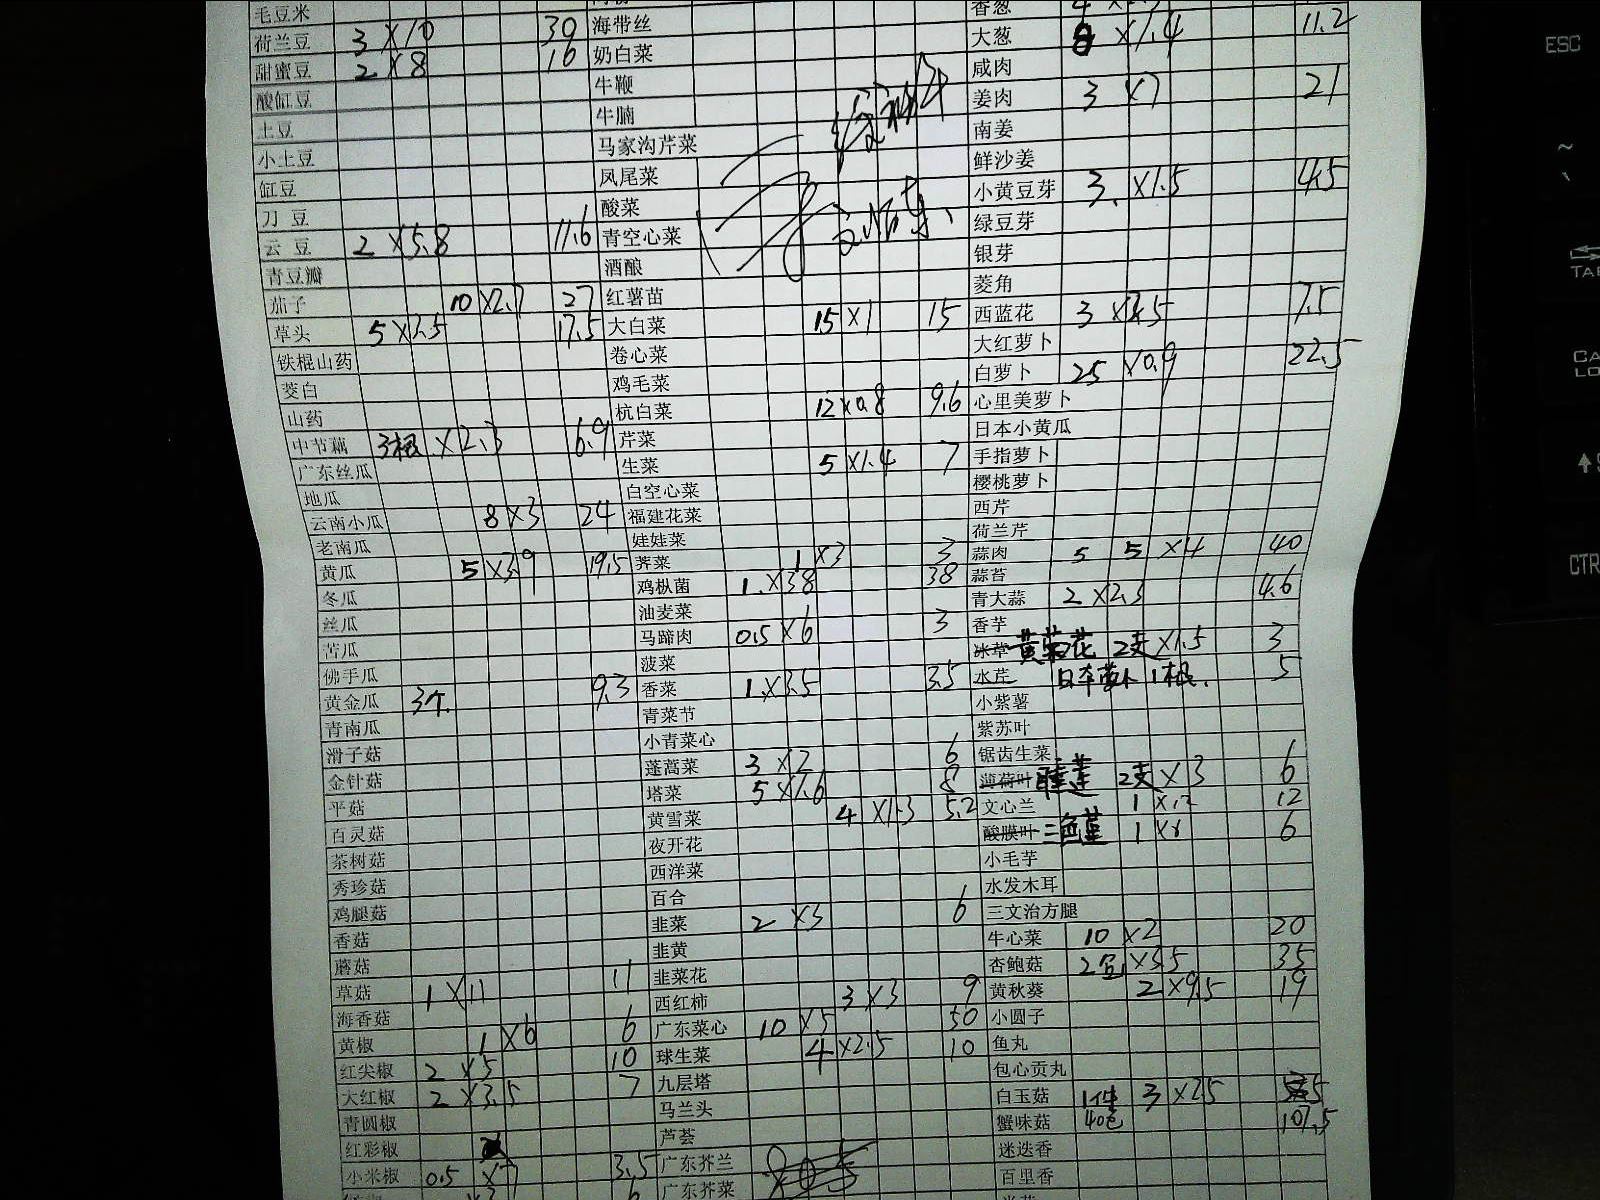 毛豆米
荷兰豆 3 ×10 30
甜蜜豆 2 ×8 16
酸缸豆
土豆
小土豆
缸豆
刀 豆
云 豆 2 ×5.8 11.6
青豆瓣
茄子 10 ×2.7 27
草头 5 ×3.5 17.5
铁棍山药
茭白
山药
中节藕 3根 ×2.3 6.9
广东丝瓜
地瓜
云南小瓜 8 ×3 24
老南瓜
黄瓜 5 ×3.9 19.5
冬瓜
丝瓜
苦瓜
佛手瓜
黄金瓜 3个 9.3
青南瓜
滑子菇
金针菇
平菇
百灵菇
茶树菇
秀珍菇
鸡腿菇
香菇
蘑菇
草菇 1 ×11 11
海香菇
黄椒 1 ×6 6
红尖椒 2 ×5 10
大红椒 2 ×3.5 7
青圆椒
红彩椒
小米椒 0.5 ×7 3.5
海带丝
奶白菜
牛鞭
牛腩
马家沟芹菜
凤尾菜
酸菜
青空心菜
酒酿
红薯苗
大白菜 15 ×1 15
卷心菜
鸡毛菜
杭白菜 12 ×0.8 9.6
芹菜
生菜 5 ×1.4 7
白空心菜
福建花菜
娃娃菜
荠菜 1 ×3 3
鸡枞菌 1 ×38 38
油麦菜
马蹄肉 0.5 ×6 3
菠菜
香菜 1 ×3.5 3.5
青菜节
小青菜心
蓬蒿菜 3 ×2 6
塔菜 5 ×1.6 8
黄雪菜 4 ×1.3 5.2
夜开花
西洋菜
百合
韭菜 2 ×3 6
韭黄
韭菜花
西红柿 3 ×3 9
广东菜心 10 ×5 50
球生菜 4 ×2.5 10
九层塔
马兰头
芦荟
广东芥兰
广东芥菜
香葱
大葱 8 ×1.4 11.2
咸肉
姜肉 3 ×7 21
南姜
鲜沙姜
小黄豆芽 3 ×1.5 4.5
绿豆芽
银芽
菱角
西蓝花 3 ×2.5 7.5
大红萝卜
白萝卜 25 ×0.9 22.5
心里美萝卜
日本小黄瓜
手指萝卜
樱桃萝卜
西芹
荷兰芹
蒜肉 5 5 ×4 40
蒜苔
青大蒜 2 ×2.3 4.6
香芋
冰草 黄菊花 2支 ×1.5 3
水芹 日本萝卜 1根 5
小紫薯
紫苏叶
锯齿生菜 6
薄荷叶 睡莲 2支 ×3 6
文心兰 1 ×12 12
酸膜叶 三色堇 1 ×6 6
小毛芋
水发木耳
三文治方腿
牛心菜 10 ×2 20
杏鲍菇 ×3.5 35
黄秋葵 2 ×9.5 19
小圆子
鱼丸
包心贡丸
白玉菇 1件 3 ×2.5
蟹味菇 40包 107.5
迷迭香
百里香
ESC
~
TAB
CTR